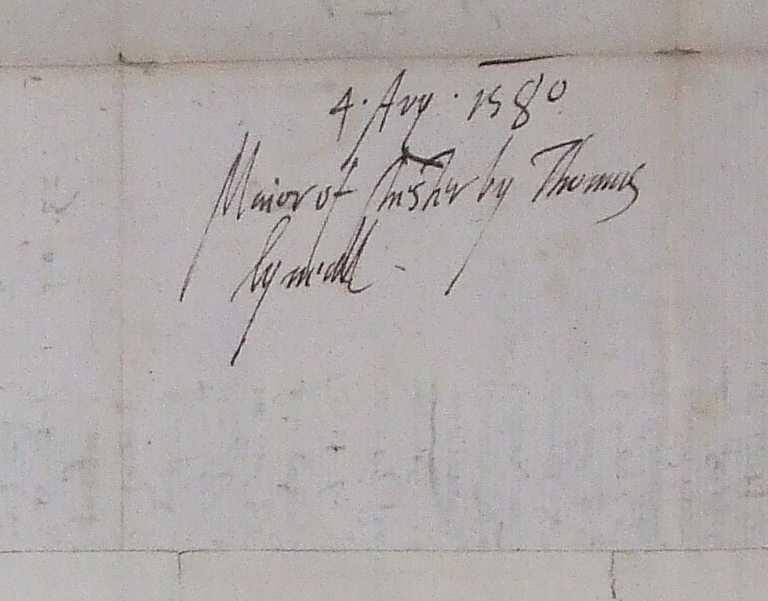 4 · Aug · 1580
Maior of Chester by Thomas